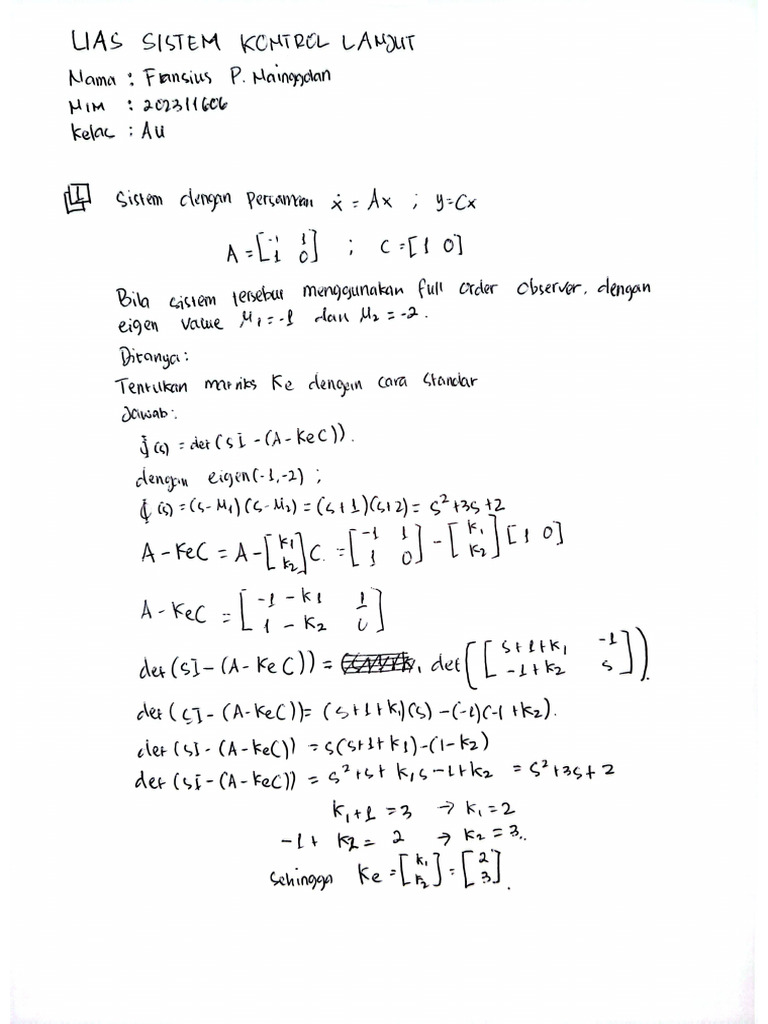 UAS SISTEM KONTROL LANJUT
Nama : Fransius P. Nainggolan
NIM : 202311606
Kelas : AU
1 Sistem dengan Persamaan ẋ = Ax ; y=Cx
A = [-1 1; 1 0] ; C = [1 0]
Bila sistem tersebut menggunakan full order observer, dengan
eigen value μ₁=-1 dan μ₂=-2.
Ditanya:
Tentukan matriks Ke dengan cara standar
Jawab:
(s) = det(sI-(A-KeC)).
dengan eigen(-1,-2) ;
(s) = (s-μ₁)(s-μ₂) = (s+1)(s+2) = s²+3s+2
A-KeC = A-[k₁; k₂]C = [-1 1; 1 0] - [k₁; k₂][1 0]
A-KeC = [-1-k₁ 1; 1-k₂ 0]
det(sI-(A-KeC)) = det([s+1+k₁ -1; -1+k₂ s]).
det(sI-(A-KeC)) = (s+1+k₁)(s)-(-1)(-1+k₂).
det(sI-(A-KeC)) = s(s+1+k₁)-(1-k₂)
det(sI-(A-KeC)) = s²+s+k₁s-1+k₂ = s²+3s+2
k₁+1 = 3 → k₁ = 2
-1+k₂ = 2 → k₂ = 3.
Sehingga Ke = [k₁; k₂] = [2; 3].